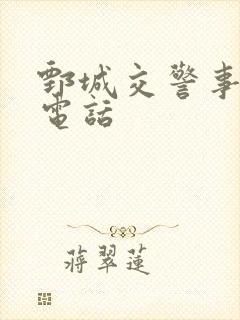 鄄城交警事
電話
蔣翠蓮